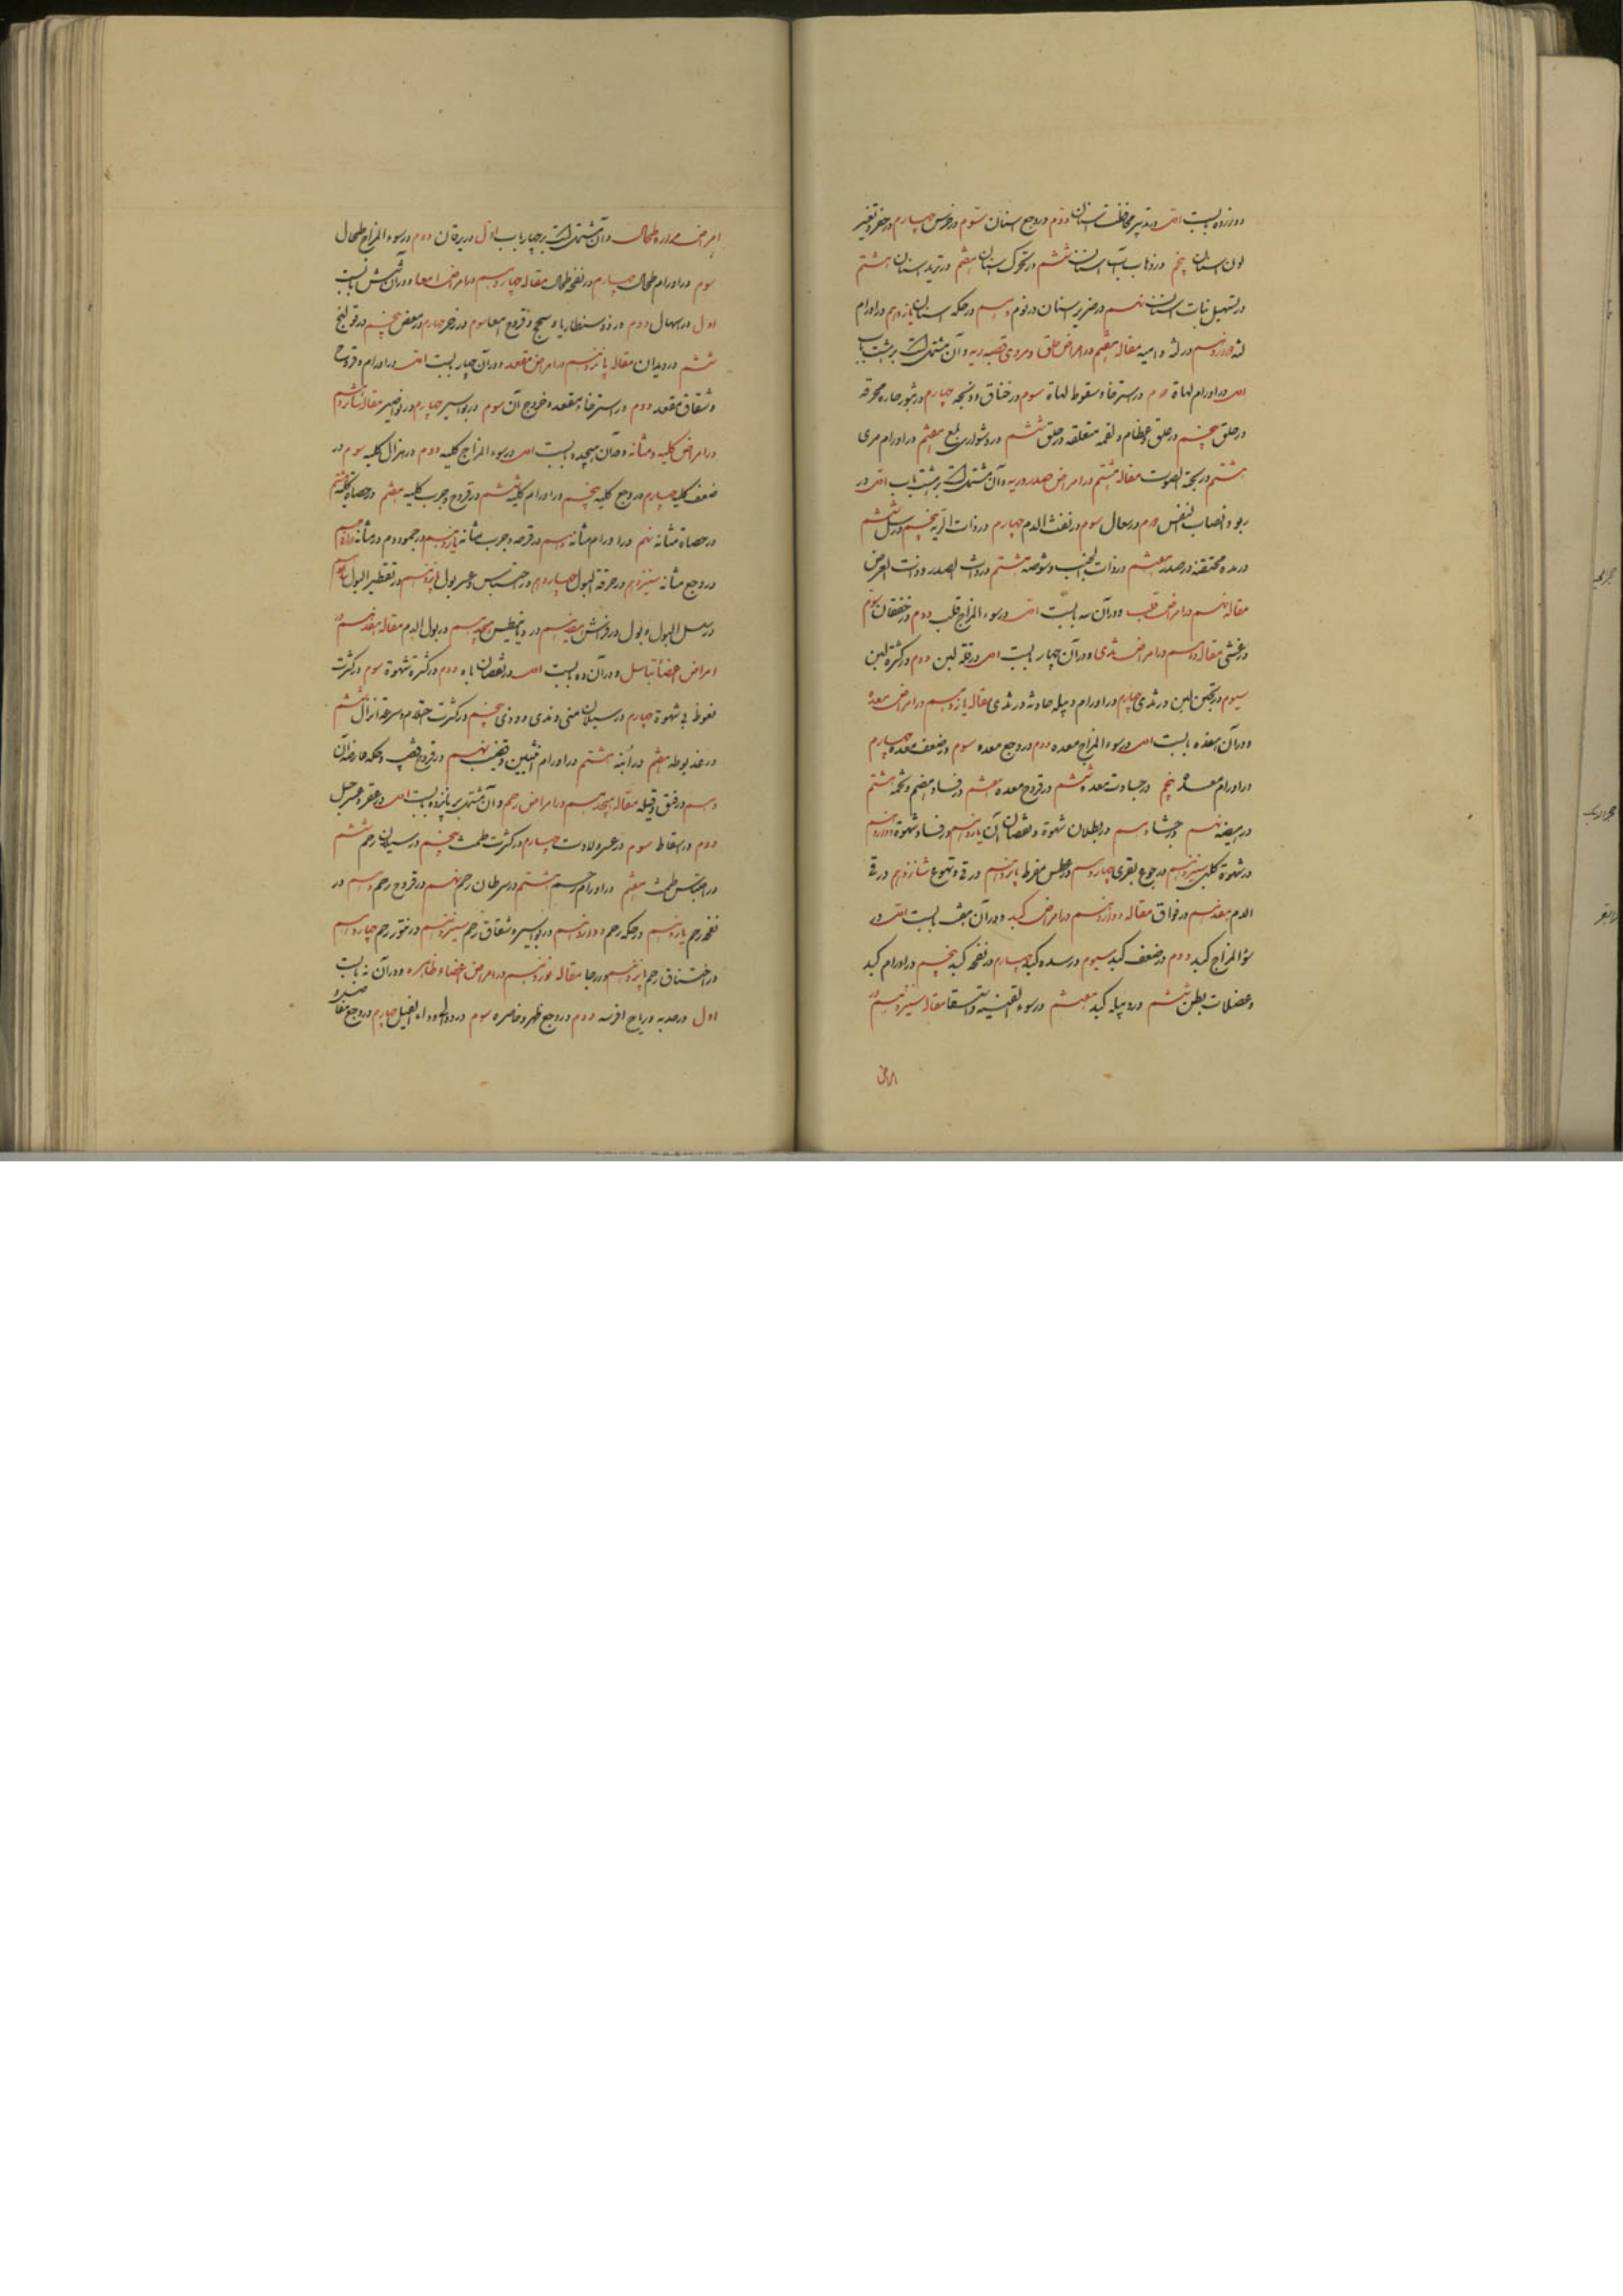 دوازده بابست اول در تدبیر محافظت اسنان دوم در وجع اسنان سوم در ضرس چهارم در حفر و تغیر
لون اسنان پنجم در ذهاب آب اسنان ششم در تحرک اسنان هفتم در تزید اسنان هشتم
در تسهیل نبات اسنان نهم در ضریر اسنان در نوم دهم در حکه اسنان یازدهم در اورام
لثه دوازدهم در لثه دامیه مقاله هفتم در امراض حلق و مری و قصبه ریه و آن مشتمل است بر هشت باب
اول در اورام لهاة دوم در استرخاء و سقوط لهاة سوم در خناق و ذبحه چهارم در بثور حاره محرقه
در حلق پنجم در علق و عظام و لقمه متعلقه در حلق ششم در دشواری بلع هفتم در اورام مری
هشتم در بحة الصوت مقاله هشتم در امراض صدر و ریه و آن مشتمل است بر هشت باب اول در
ربو و انصاب النفس دوم در سعال سوم در نفث الدم چهارم در ذات الریه پنجم در سل ششم
در مده محتقنه در صدر هفتم در ذات الجنب و شوصه هشتم در ذات الصدر و ذات العرض
مقاله نهم در امراض قلب و در آن سه بابست اول در سوء المزاج قلب دوم در خفقان سوم
در غشی مقاله دهم در امراض ثدی و در آن چهار بابست اول در قله لبن دوم در کثرة لبن
سیوم در تجبن لبن در ثدی چهارم در اورام و دبیله حادثه در ثدی مقاله یازدهم در امراض معده
و در آن هفده بابست اول در سوء المزاج معده دوم در وجع معده سوم در ضعف معده چهارم
در اورام معده پنجم در جساوت معده ششم در قروح معده هفتم در فساد هضم و تخمه هشتم
در هیضه نهم در جشاء دهم در بطلان شهوة و نقصان آن یازدهم در فساد شهوة دوازدهم
در شهوة کلبی سیزدهم در جوع بقری چهاردهم در عطش مفرط پانزدهم در قی و تهوع شانزدهم در قی
الدم هفدهم در فواق مقاله دوازدهم در امراض کبد و در آن هفت بابست اول در
سؤ المزاج کبد دوم در ضعف کبد سیوم در سده کبد چهارم در نفخه کبد پنجم در اورام کبد
و عضلات بطن ششم در دبیله کبد هفتم در سوء القنیه و استسقا مقاله سیزدهم در
امراض
امراض مراره و طحال و آن مشتمل است بر چهار باب اول در یرقان دوم در سوء المزاج طحال
سوم در اورام طحال چهارم در نفخه طحال مقاله چهاردهم در امراض امعا و در آن شش بابست
اول در اسهال دوم در ذوسنطاریا و سحج و قروح امعا سوم در زحیر چهارم در مغص پنجم در قولنج
ششم در دیدان مقاله پانزدهم در امراض مقعد و در آن چهار بابست اول در اورام و قروح
و شقاق مقعد دوم در استرخاء مقعد و خروج آن سوم در بواسیر چهارم در نواصیر مقاله شانزدهم
در امراض کلیه و مثانه و در آن هیجده بابست اول در سوء المزاج کلیه دوم در هزال کلیه سوم در
ضعف کلیه چهارم در وجع کلیه پنجم در اورام کلیه ششم در قروح و جرب کلیه هفتم در حصاة کلیه هشتم
در حصاة مثانه نهم در اورام مثانه دهم در قرحه و جرب مثانه یازدهم در جمود دم در مثانه دوازدهم
در وجع مثانه سیزدهم در حرقة البول چهاردهم در احتباس و عسر بول پانزدهم در تقطیر البول شانزدهم
در سلس البول و بول در فراش هفدهم در دیانیطس هیجدهم در بول الدم مقاله هفدهم در
امراض اعضاء تناسل و در آن ده بابست اول در نقصان باه دوم در کثرة شهوة سوم در کثرت
نعوظ بی شهوة چهارم در سیلان منی و مذی و ودی پنجم در کثرت احتلام و سرعة انزال ششم
در عذیوطه هفتم در ابنه هشتم در اورام انثیین و قضیب نهم در قروح قضیب و حکه عارضه آن
دهم در فتق و قیله مقاله هیجدهم در امراض رحم و آن مشتمل بر پانزده بابست اول در عقر و عسر حبل
دوم در اسقاط سوم در عسر ولادت چهارم در کثرت طمث پنجم در سیلان رحم ششم
در احتباس طمث هفتم در اورام رحم هشتم در سرطان رحم نهم در قروح رحم دهم در
نفخه رحم یازدهم در حکه رحم دوازدهم در بواسیر و شقاق رحم سیزدهم در نتو رحم چهاردهم
در اختناق رحم پانزدهم در رجا مقاله نوزدهم در امراض اعضاء ظاهره و در آن نه بابست
اول در حدبه و ریاح افرسه دوم در وجع ظهر و خاصره سوم در دوالی و داء الفیل چهارم در وجع مفاصل